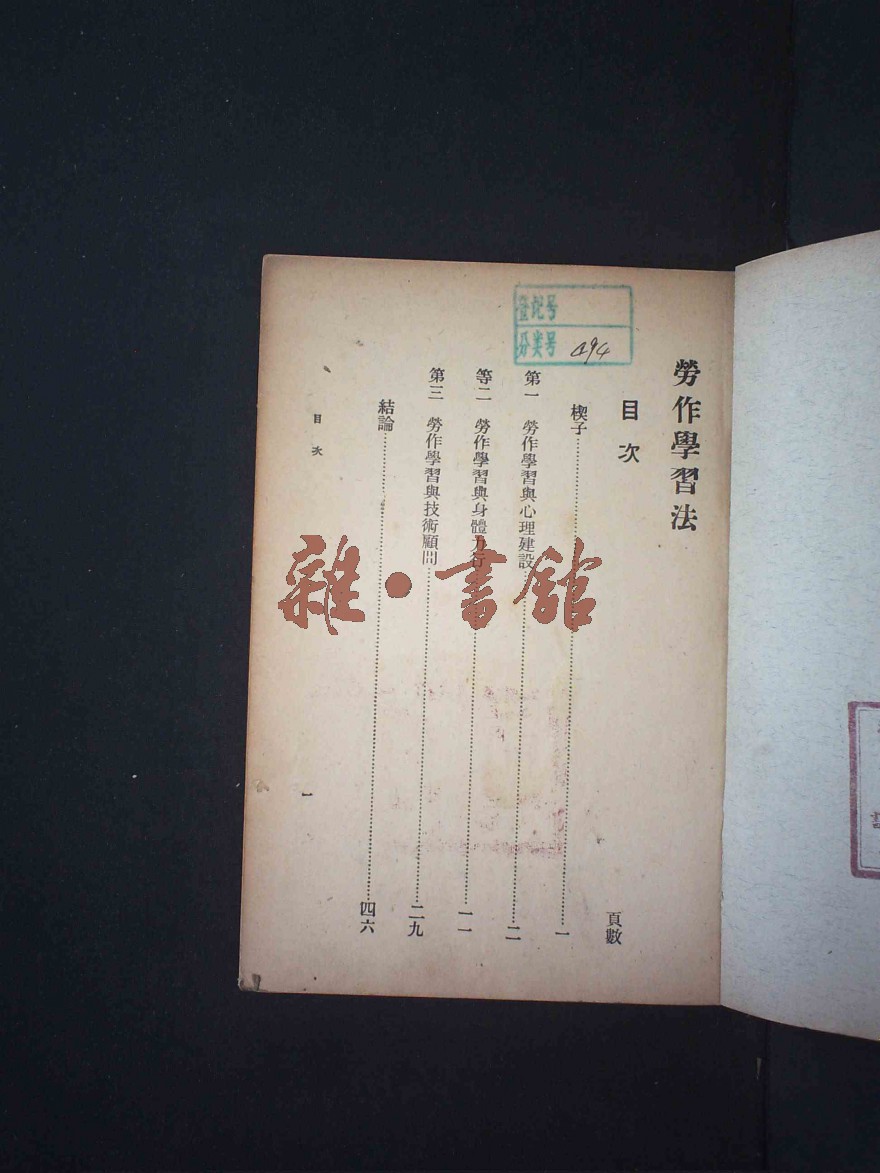 勞作學習法
目次
頁數
楔子……一
第一 勞作學習與心理建設……二
等二 勞作學習與身體力行……一一
第三 勞作學習與技術顧問……二九
結論……四六
目次
一
登記号
分类号 494
雜·書館